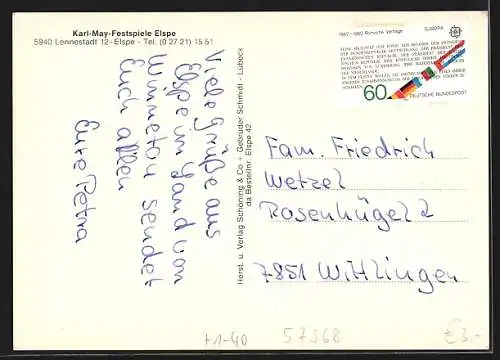 Karl-May-Festspiele Elspe
5940 Lennestadt 12 - Elspe - Tel. (0 27 21) 15 51
Viele Grüße aus
Elspe im Land von
Winnetou sendet
Euch allen
Eure Petra
Herst. u. Verlag Schöning & Co + Gebrüder Schmidt - Lübeck
da Bestellnr. Elspe 42
1957-1982 Römische Verträge EUROPA
60
DEUTSCHE BUNDESPOST
Fam. Friedrich
Wetzel
Rosenhügel 2
7851 Wittlingen
57368
€ 3.-